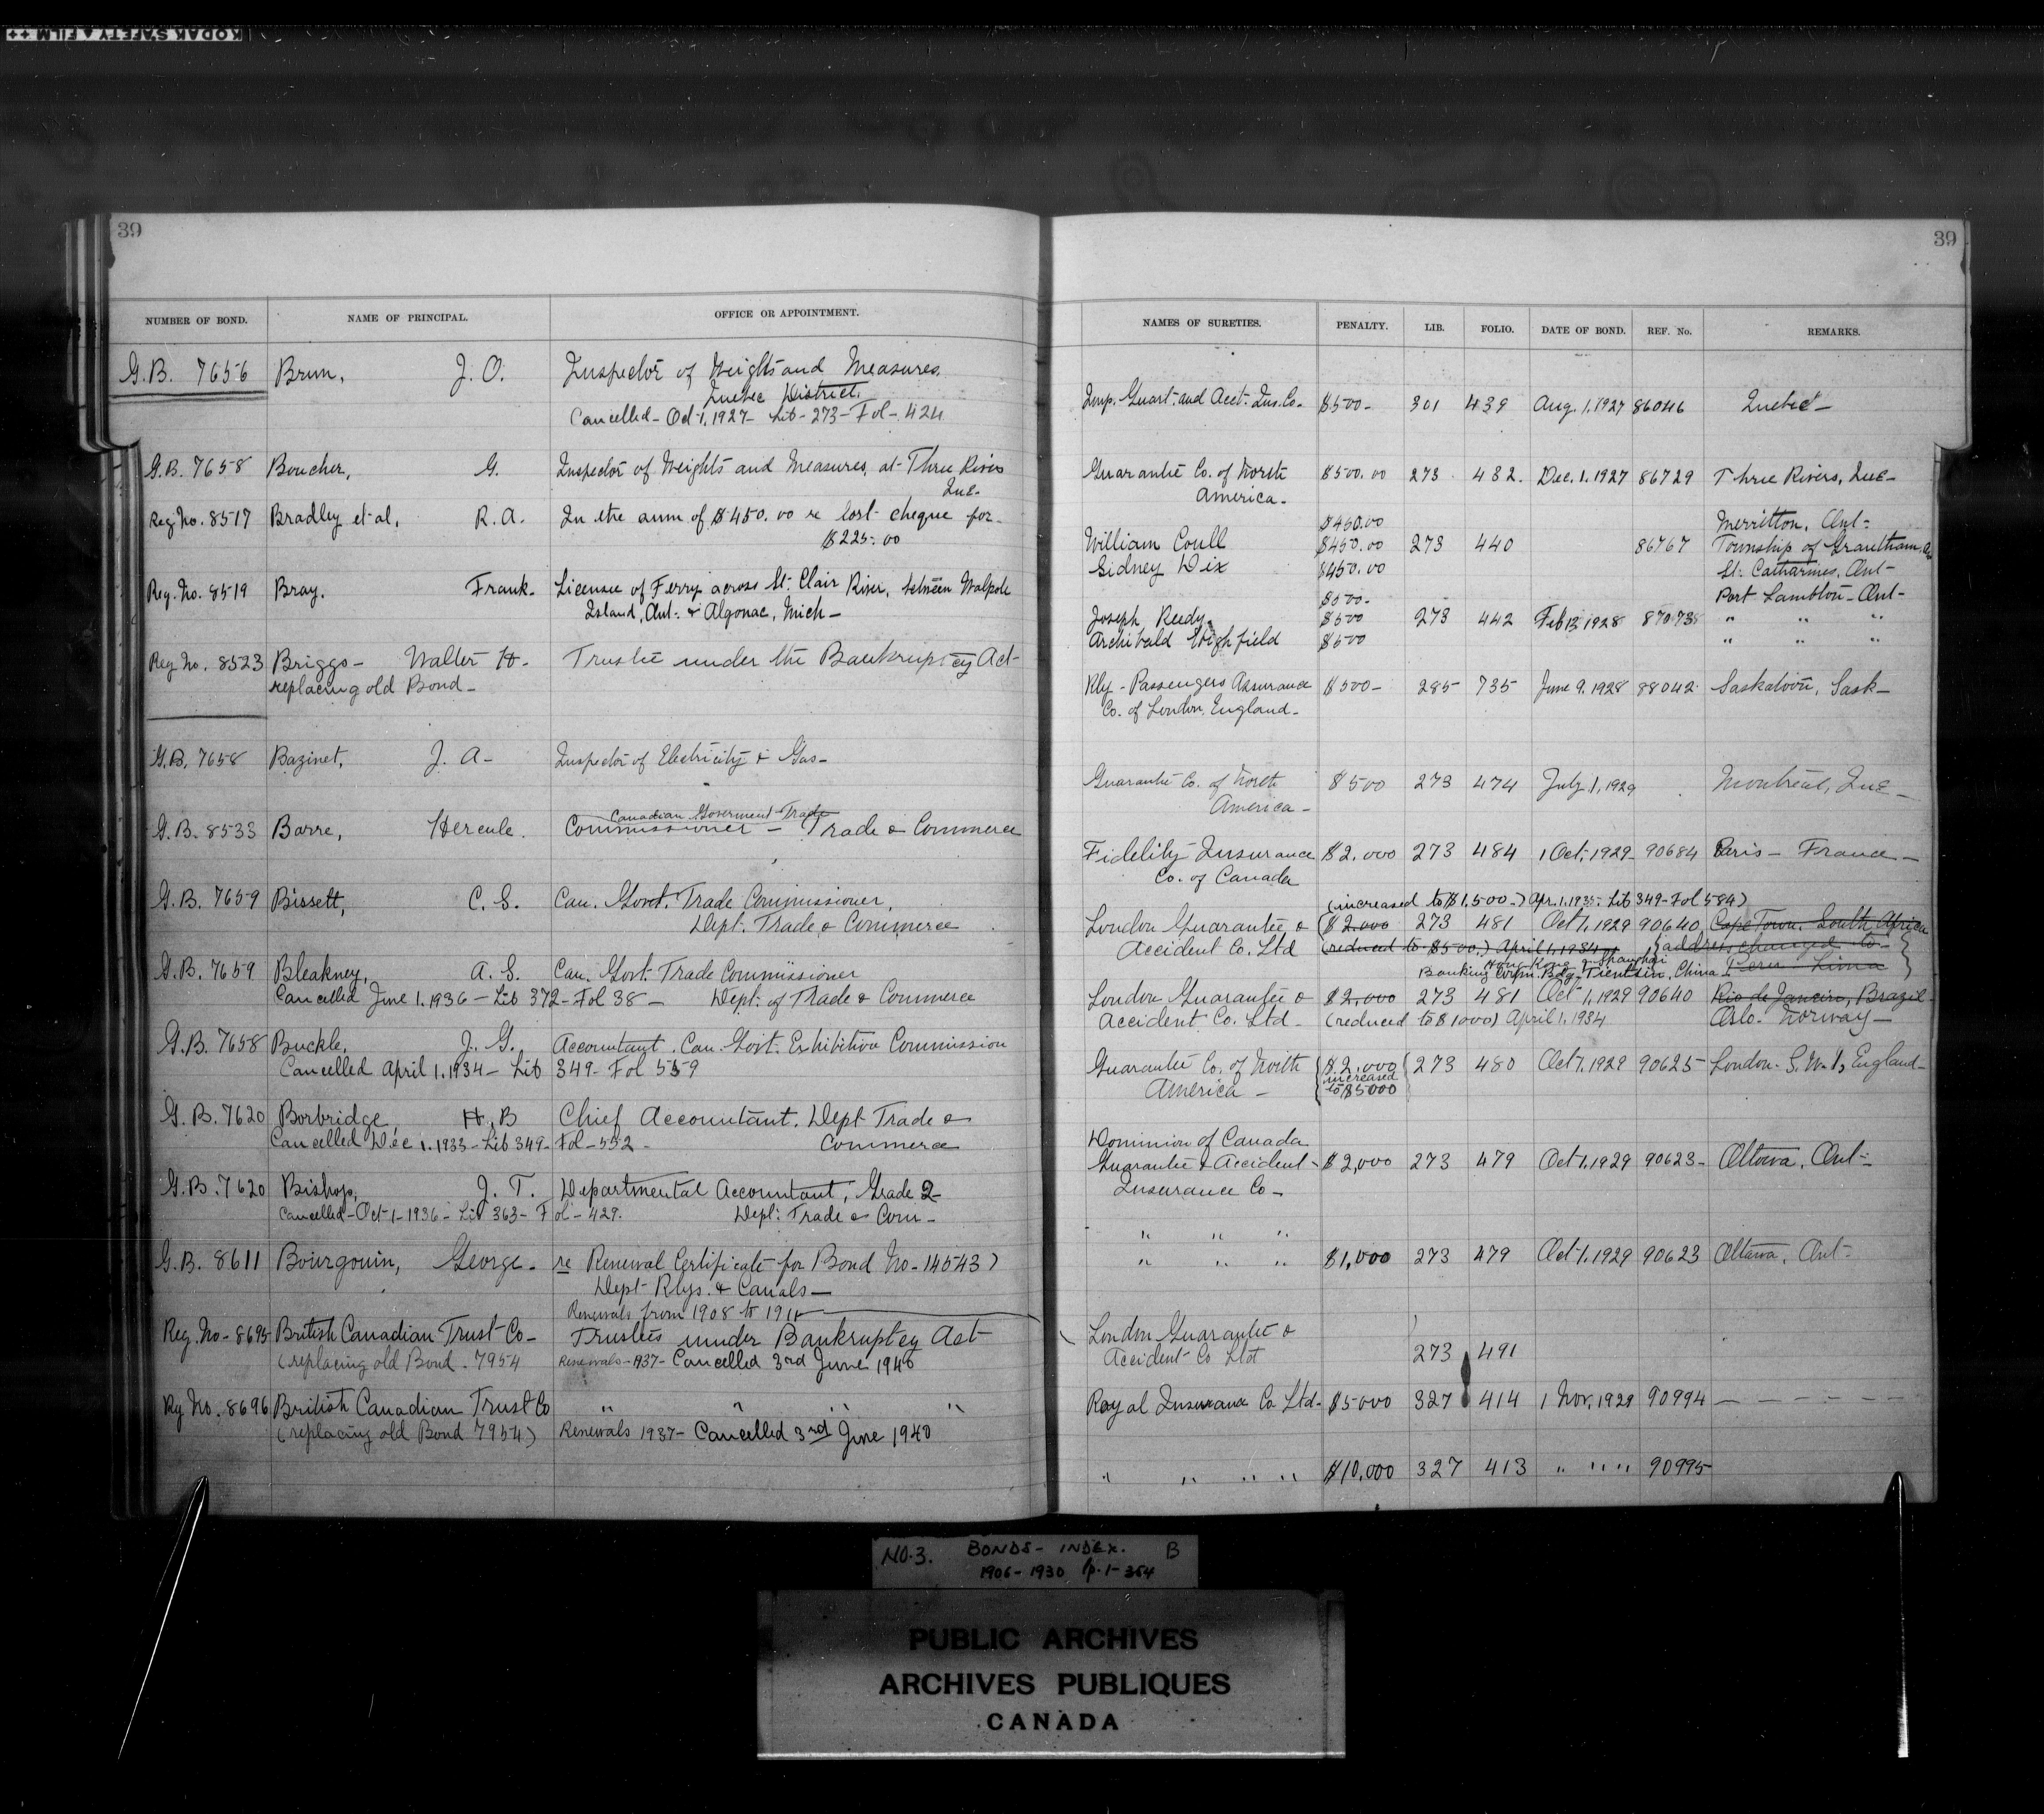 KODAK SAFETY FILM ++
39
NUMBER OF BOND. NAME OF PRINCIPAL. OFFICE OR APPOINTMENT.
G.B. 7656 Brun, J. O. Inspector of Weights and Measures.
Quebec District.
Cancelled - Oct 1, 1927 - Lib - 273 - Fol - 424
G.B. 7658 Boucher, G. Inspector of Weights and Measures, at Three Rivers
Que.
Reg. No. 8517 Bradley et al, R. A. In the sum of $450.00 re lost cheque for
$225.00
Reg. No. 8519 Bray, Frank. Licensee of Ferry across St. Clair River, between Walpole
Island, Ont. & Algonac, Mich -
Reg No. 8523 Briggs - Walter H. Trustee under the Bankruptcy Act
replacing old Bond -
G.B. 7658 Bazinet, J. A - Inspector of Electricity & Gas -
Canadian Goverment Trade
G.B. 8533 Barre, Hercule. Commissioner - Trade & Commerce
G.B. 7659 Bissett, C. S. Can. Govt. Trade Commissioner,
Dept. Trade & Commerce
G.B. 7659 Bleakney, A. S. Can. Govt. Trade Commissioner
Cancelled June 1. 1936 - Lib 372 - Fol 38 - Dept. of Trade & Commerce
G.B. 7658 Buckle, J. G. Accountant. Can. Govt. Exhibition Commission
Cancelled April 1. 1934 - Lib 349 - Fol 559
G.B. 7620 Borbridge, H. B Chief Accountant. Dept Trade &
Cancelled Dec 1. 1933 - Lib 349 - Fol - 552 - Commerce
G.B. 7620 Bishop, J. T. Departmental Accountant, Grade 2
Cancelled - Oct - 1 - 1936 - Lib 363 - Fol - 429. Dept. Trade & Com -
G.B. 8611 Bourgouin, George - re Renewal Certificate for Bond No - 14543)
Dept Rlys. & Canals -
Renewals from 1908 to 1911
Reg. No - 8695 British Canadian Trust Co - Trustees under Bankruptcy Act
(replacing old Bond - 7954 Renewals - 1937 - Cancelled 3rd June 1940
Reg No. 8696 British Canadian Trust Co " " " "
(replacing old Bond 7954) Renewals 1937 - Cancelled 3rd June 1940
39
NAMES OF SURETIES. PENALTY. LIB. FOLIO. DATE OF BOND. REF. No. REMARKS.
Imp. Guart. and Acct. Ins. Co - $500 - 301 439 Aug. 1, 1927 86046 Quebec -
Guarantee Co. of North $500.00 273 432. Dec. 1. 1927 86729 Three Rivers, Que -
America -
$450.00 Merritton, Ont -
William Coull $450.00 273 440 86767 Township of Grantham, Ont
Sidney Dix $450.00 St. Catharines, Ont -
$500 - Port Lambton - Ont -
Joseph Reedy $500 273 442 Feb 13 1928 " " "
Archibald Highfield $500 " " "
Rly - Passengers Assurance $500 - 285 735 June 9. 1928 88042 Saskatoon, Sask -
Co. of London, England -
Guarantee Co. of North $500 273 474 July 1, 1929 Montreal, Que -
America -
Fidelity Insurance $2,000 273 484 1 Oct, 1929 - 90684 Paris - France -
Co. of Canada
(increased to $1,500 -) Apr. 1. 1935 - Lib 349 - Fol 584)
London Guarantee & ($2,000 273 481 Oct 1, 1929 90640 Cape Town. South Africa
Accident Co. Ltd (reduced to $500.) April 1, 1934 {address changed to
Hong Kong & Shanghai
Banking Corpn. Bdg, Tientsin, China Peru - Lima
London Guarantee & $2,000 273 481 Oct 1, 1929 90640 Rio de Janeiro, Brazil
Accident Co. Ltd - (reduced to $1000) April 1. 1934 Oslo - Norway -
Guarantee Co. of North { $2,000 273 480 Oct 1, 1929 90625 - London - S.W.1, England -
America - increased
to $5000
Dominion of Canada
Guarantee & Accident - $2,000 273 479 Oct 1. 1929 90623 - Ottawa, Ont -
Insurance Co -
" " "
" " " $1,000 273 479 Oct 1. 1929 90623 Ottawa, Ont -
London Guarantee &
Accident Co Ltd 273 491
Royal Insurance Co Ltd - $5000 327 414 1 Nov, 1929 90994 - - - - -
" " " " $10,000 327 413 " " " " 90995
NO. 3. BONDS - INDEX. B
1906 - 1930 p. 1 - 354
PUBLIC ARCHIVES
ARCHIVES PUBLIQUES
CANADA